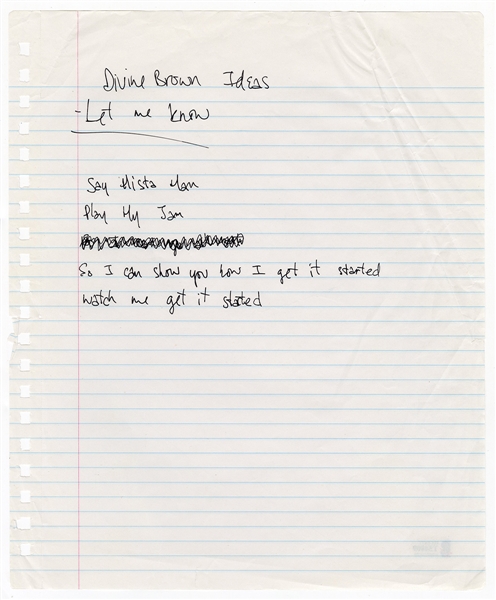 Divine Brown Ideas
- Let me know
Say Mista Man
Play My Jam
So I can show you how I get it started
watch me get it started